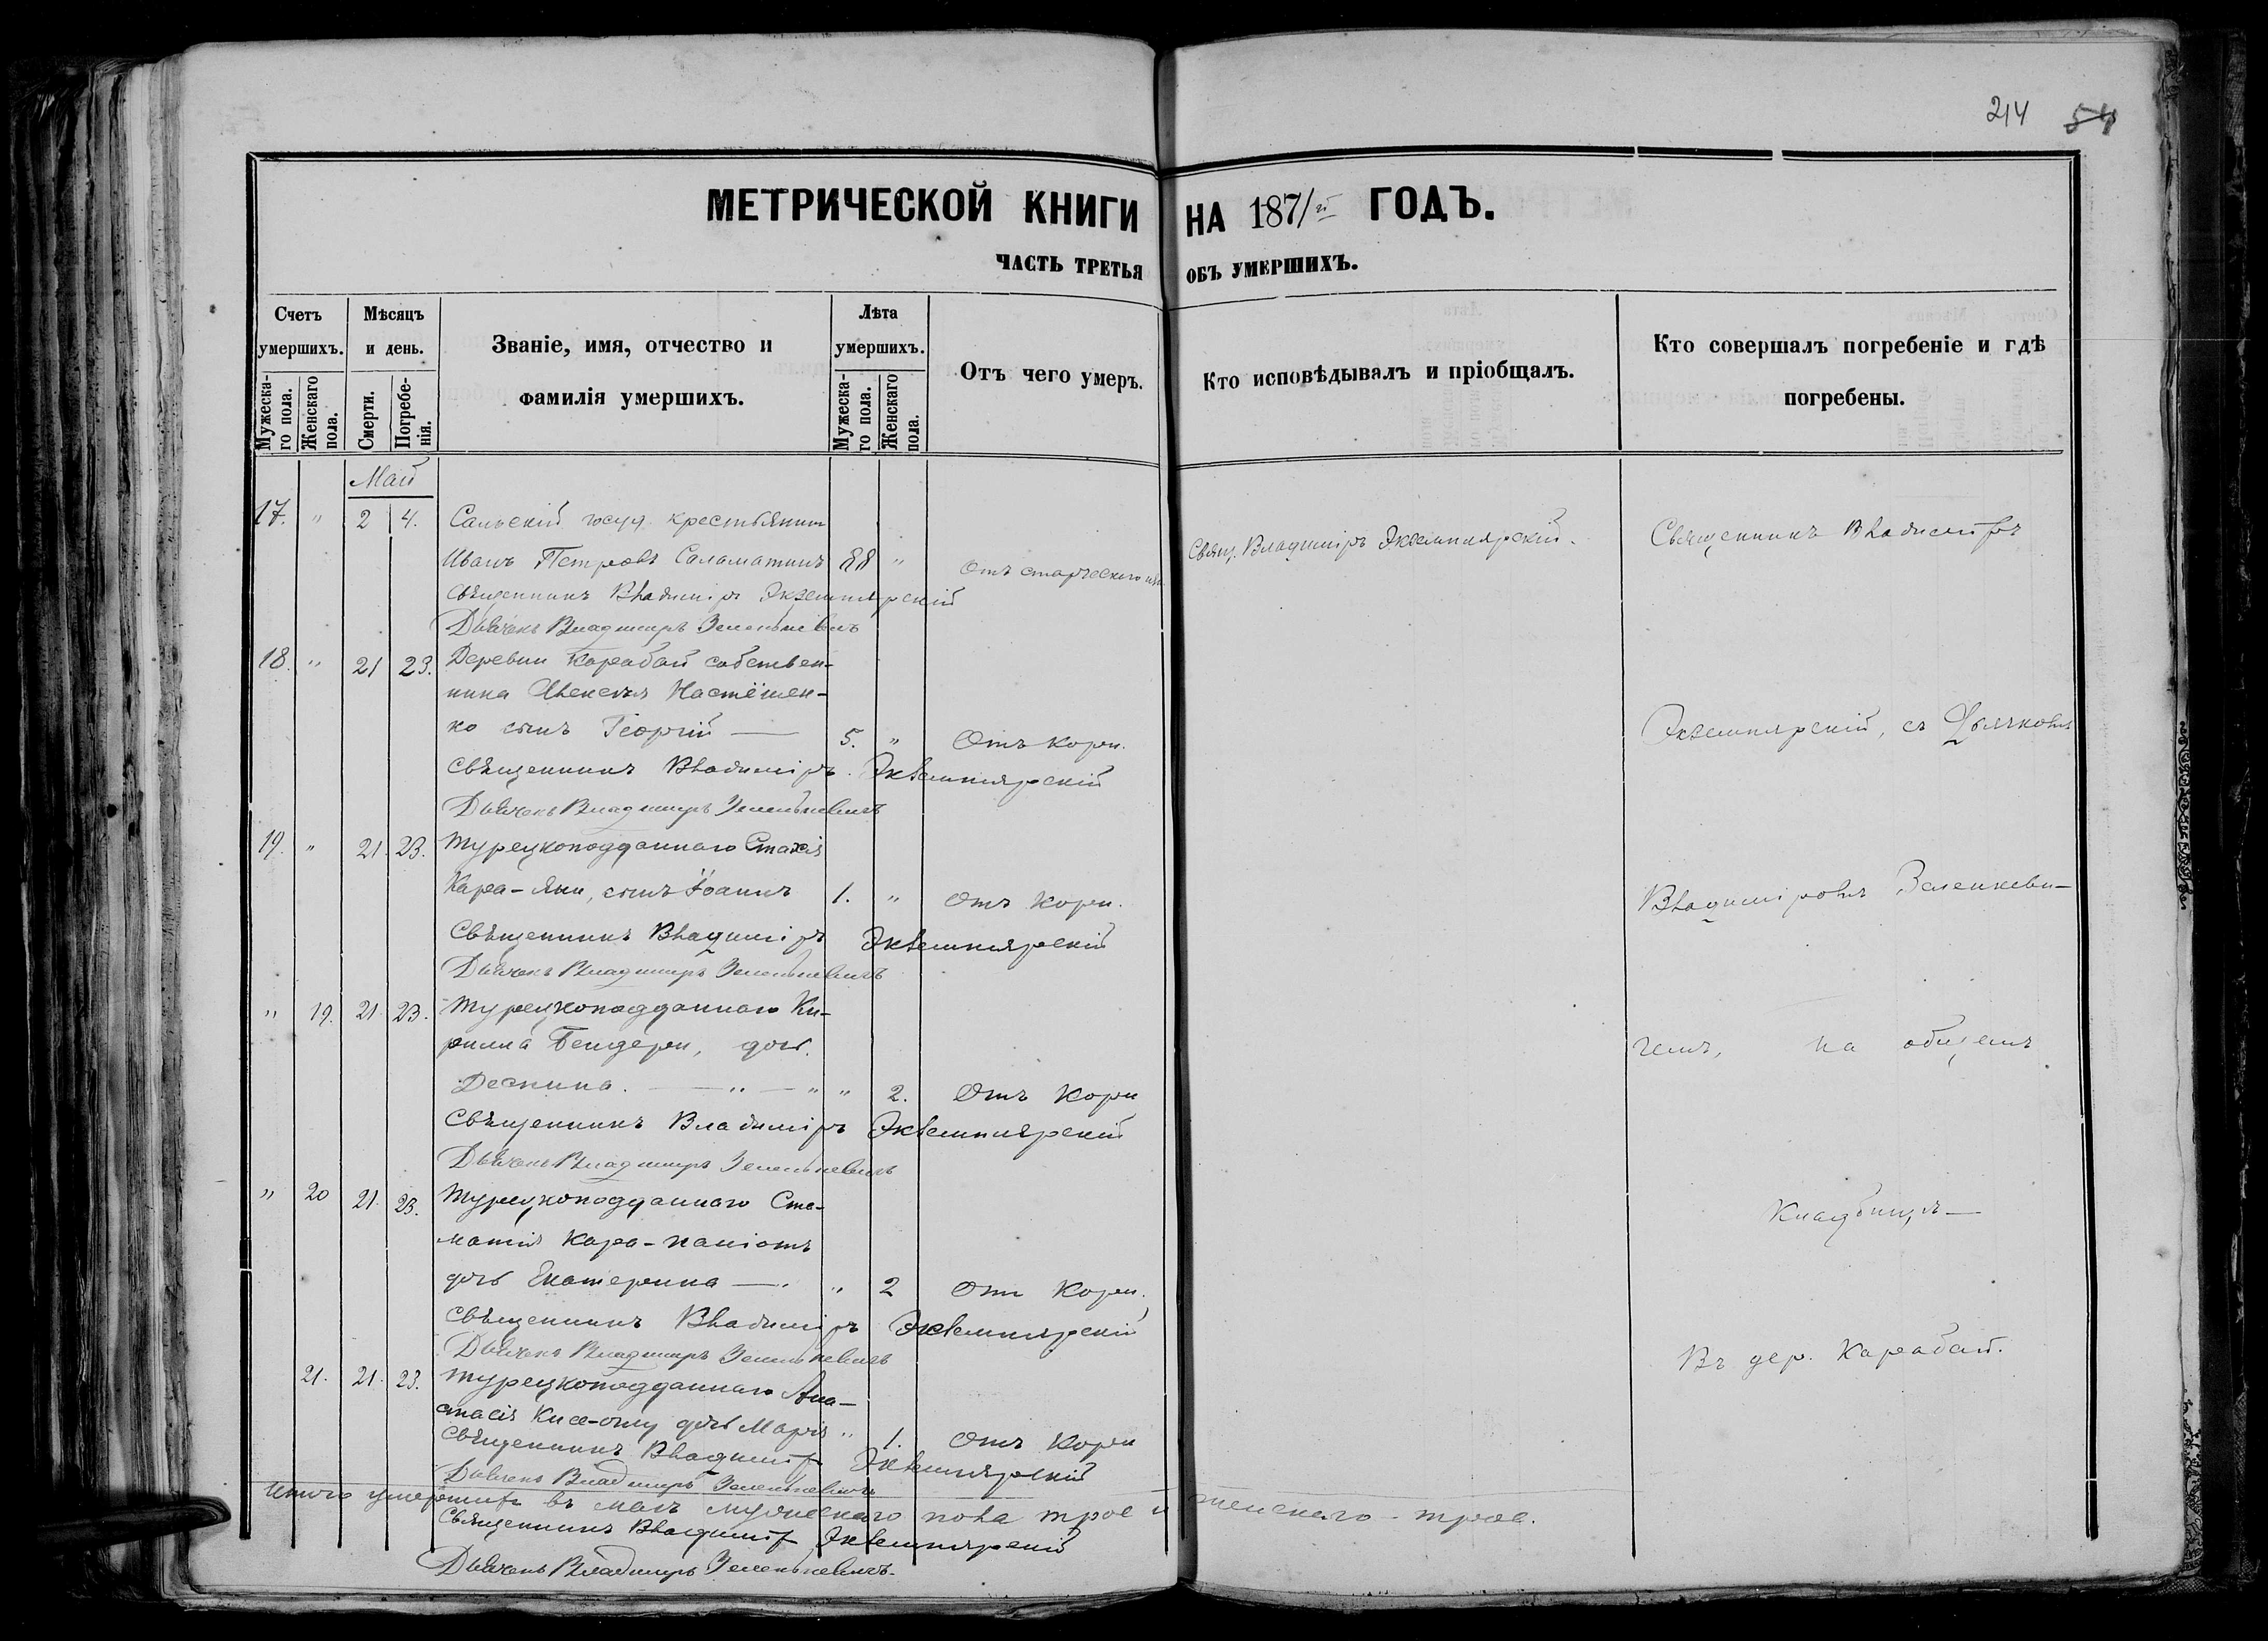 214 54
МЕТРИЧЕСКОЙ КНИГИ НА 1871/й ГОДЪ.
ЧАСТЬ ТРЕТЬЯ ОБЪ УМЕРШИХЪ.
Счетъ умершихъ.
Мужеска-го пола.
Женскаго пола.
Мѣсяцъ и день.
Смерти.
Погребе-нія.
Званіе, имя, отчество и фамилія умершихъ.
Лѣта умершихъ.
Мужеска-го пола.
Женскаго пола.
Отъ чего умеръ.
Кто исповѣдывалъ и пріобщалъ.
Кто совершалъ погребеніе и гдѣ погребены.
Май
17. " 2 4. госуд. крестьянинъ
Иванъ Петровъ Саламатинъ 88 " Отъ старческаго
Свящ. Владиміръ Экземплярскій.
Священникъ Владиміръ Экземплярскій
Дьячекъ Владимиръ Зеленкевичъ
18. " 21 23. Деревни Карабай собствен-
ника Алексѣя
ко сынъ Георгій — 5. " Отъ кори.
Священникъ Владиміръ Экземплярскій
Дьячекъ Владимиръ Зеленкевичъ
19. " 21. 23. Турецкоподданнаго Стахія
Кара-Яни, сынъ Іоаннъ 1. " Отъ кори.
Священникъ Владиміръ Экземплярскій
Дьячекъ Владимиръ Зеленкевичъ
" 19. 21. 23. Турецкоподданнаго Ки-
рилла Бендери, дочь
Деспина. — " — " " 2. Отъ кори
Священникъ Владиміръ Экземплярскій
Дьячекъ Владимиръ Зеленкевичъ
" 20 21. 23. Турецкоподданнаго Ста-
матія Кара-Паніотъ
дочь Екатерина — " 2 Отъ кори.
Священникъ Владиміръ Экземплярскій
Дьячекъ Владимиръ Зеленкевичъ
21. 21. 23. Турецкоподданнаго Ана-
стасія дочь Марія " 1. Отъ кори
Священникъ Владиміръ Экземплярскій
Дьячекъ Владимиръ Зеленкевичъ
Итого умершихъ въ маѣ мужескаго пола трое и женскаго - трое.
Священникъ Владиміръ Экземплярскій
Дьячекъ Владимиръ Зеленкевичъ.
Священникъ Владиміръ
Экземплярскій, съ Дьячкомъ
Владиміромъ Зеленкеви-
чемъ, на общемъ
Кладбищѣ —
Въ дер. Карабай.